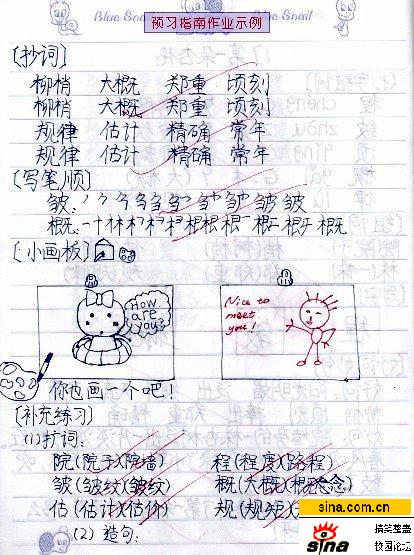 预习指南作业示例
Blue Snail Blue Snail
[抄词]
柳梢 大概 郑重 顷刻
柳梢 大概 郑重 顷刻
规律 估计 精确 常年
规律 估计 精确 常年
[写笔顺]
皱:
概:
[小画板]
How are you?
Nice to meet you!
你也画一个吧!
[补充练习]
(1)扩词:
院(院子)(院墙) 程(程度)(路程)
皱(皱纹)(皱纹) 概(大概)(概念)
估(估计)(估价) 规(规矩)
(2) 造句.
sina.com.cn
sina
搞笑整蛊
校园论坛